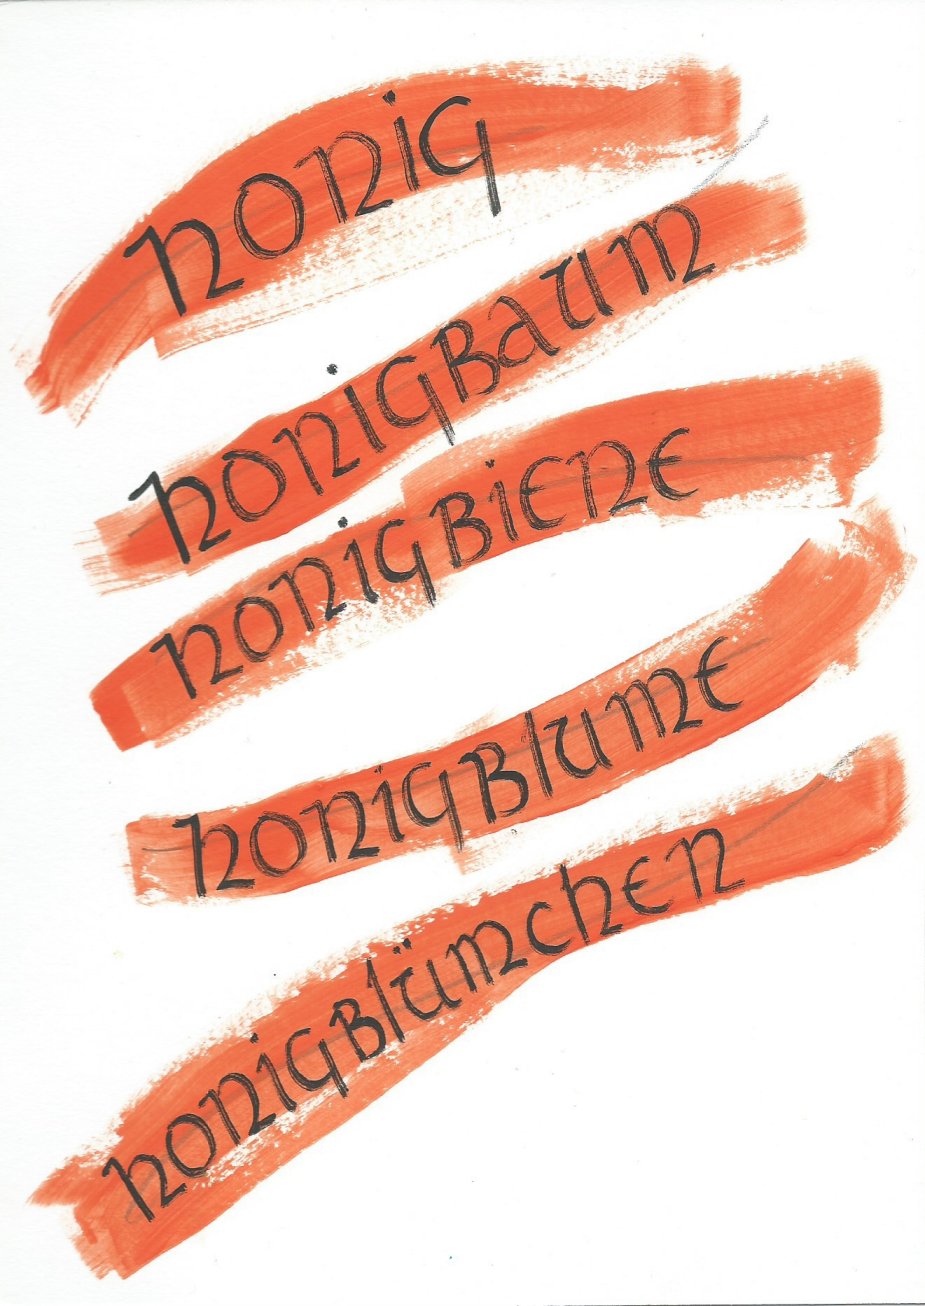 honig
honigbaum
honigbiene
honigblume
honigblümchen